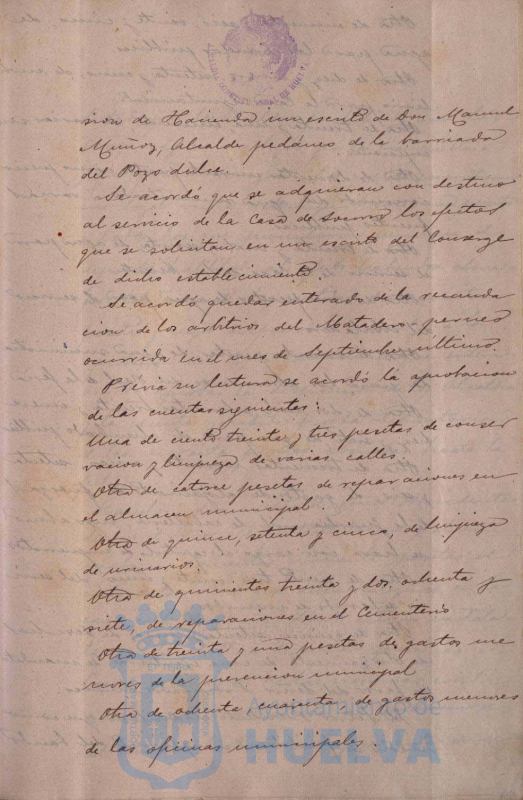 sion de Hacienda un escrito de Don Manuel
Muñoz, Alcalde pedáneo de la barriada
del Pozo dulce.
Se acordó que se adquieran con destino
al servicio de la Casa de Socorro los efectos
que se solicitan en un escrito del Conserge
de dicho establecimiento.
Se acordó quedar enterado de la recauda
cion de los arbitrios del Matadero
ocurrida en el mes de Septiembre ultimo.
Previa su lectura se acordó la aprobacion
de las cuentas siguientes:
Una de ciento treinta y tres pesetas de conser
vacion y limpieza de varias calles.
Otra de catorce pesetas de reparaciones en
el almacen municipal.
Otra de quince, setenta y cinco, de limpieza
de urinarios.
Otra de quinientas treinta y dos, ochenta y
siete, de reparaciones en el Cementerio
Otra de treinta y una pesetas de gastos me
nores de la prevencion municipal
Otra de ochenta, cuarenta, de gastos menores
de las oficinas municipales.
Ayuntamiento de
HUELVA